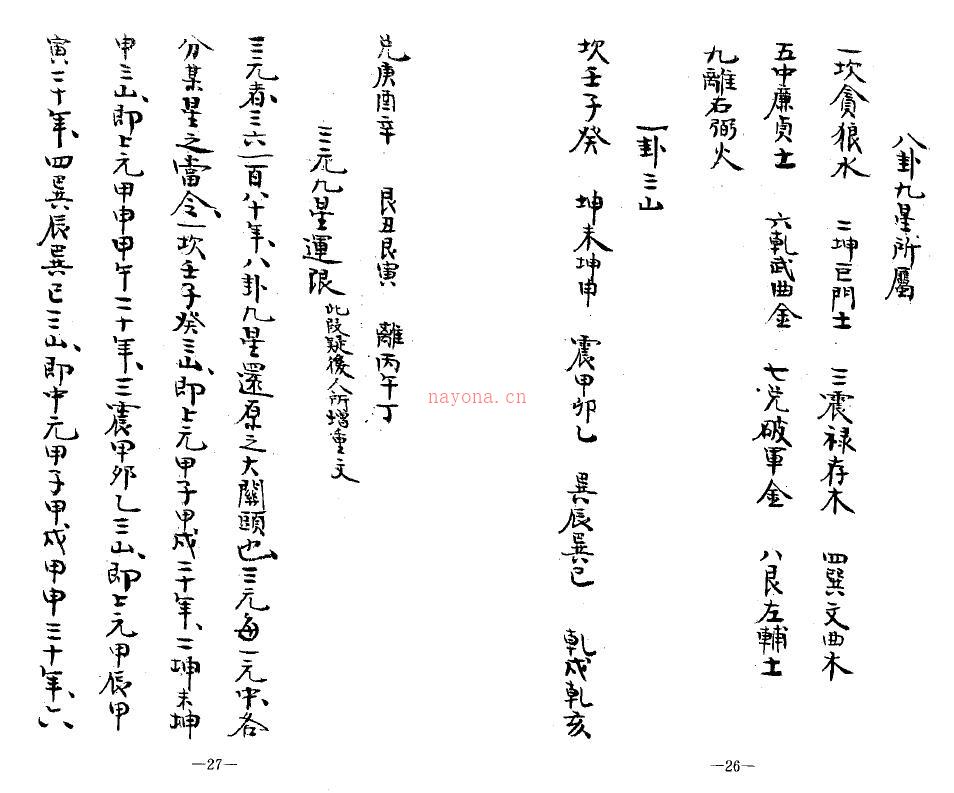 八卦九星所屬
一坎貪狼水 二坤巨門土 三震祿存木 四巽文曲木
五中廉貞土 六乾武曲金 七兌破軍金 八艮左輔土
九離右弼火
一卦三山
坎壬子癸 坤未坤申 震甲卯乙 巽辰巽巳 乾戌乾亥
—26—
兌庚酉辛 艮丑艮寅 離丙午丁
三元九星運限 此段疑後人所增重文
三元者、三六一百八十年、八卦九星還原之大關頭也、三元每一元中、各
分某星之當令、一坎壬子癸三山、即上元甲子甲戌二十年、二坤未坤
申三山、即上元甲申甲午二十年、三震甲卯乙三山、即上元甲辰甲
寅二十年、四巽辰巽巳三山、即中元甲子甲戌甲申三十年、六
—27—
nayona.cn